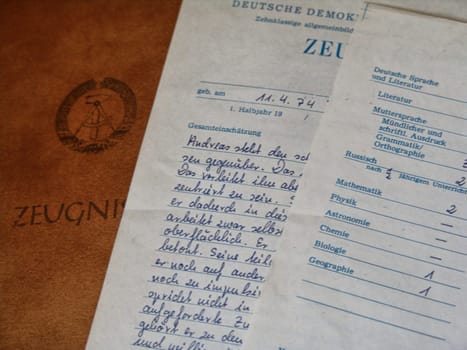 ZEUGNIS
DEUTSCHE DEMOK
Zehnklassige allgemeinbild
ZEU
geb. am 11. 4. 74
1. Halbjahr 19
Gesamteinschätzung
Andreas steht den sch
sen gegenüber. Das
Das verleitet ihn abe
zentriert zu sein.
er dadurch in die
arbeitet zwar selbs
oberflächlich. Er
betont. Seine teil
er noch auf ander
noch zu impulsi
spricht nicht in
aufgeforderte Zu
gehört er zu den
und
Deutsche Sprache
und Literatur
Literatur
Muttersprache
Mündlicher und
schriftl. Ausdruck
Grammatik/
Orthographie
Russisch
nach ½ jährigem Unterrich
Mathematik 2
Physik 2
Astronomie –
Chemie –
Biologie 1
Geographie 1